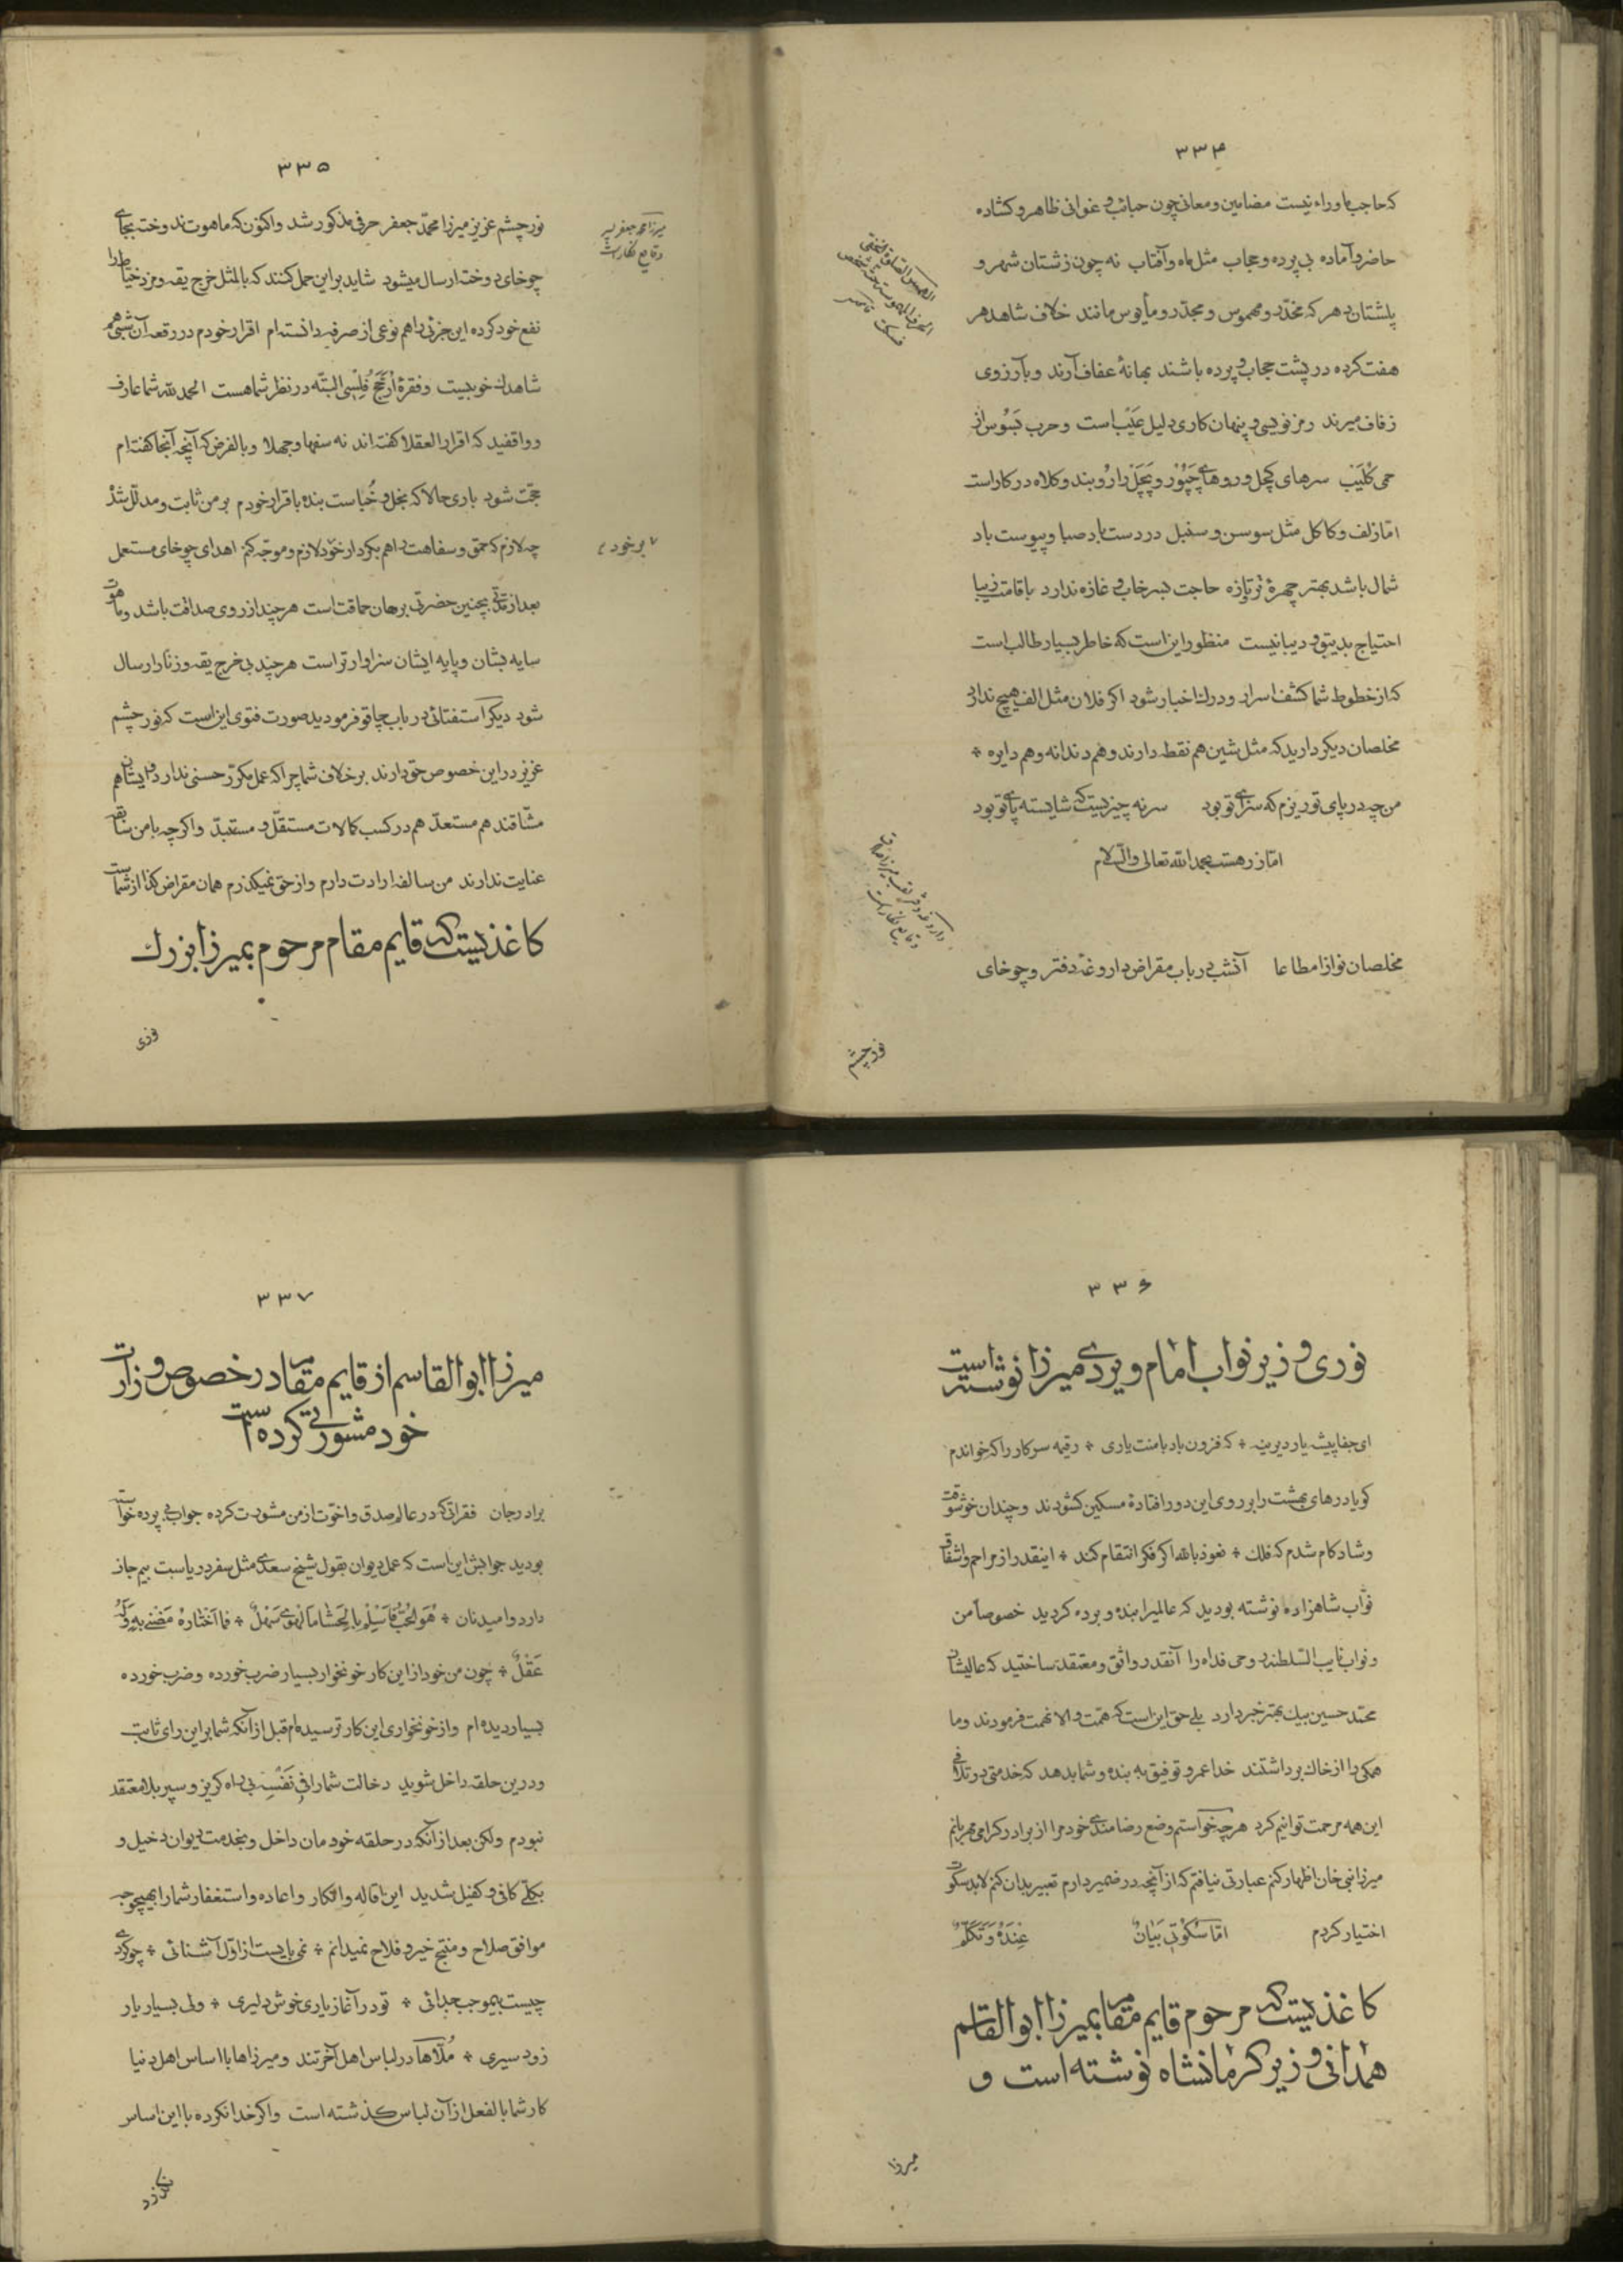 ۳۳۴
که حاجب ماوراء نیست مضامین و معانی چون حبائب و غوانی ظاهر و کشاده
حاضر و آماده بی پرده و حجاب مثل ماه و آفتاب نه چون زشتان شهر و
پلشتان دهر که مخدّر و مهموس و مجدّر و مأیوس مانند خلاف شاهد هر
هفت کرده در پشت حجاب و پرده باشند بهانهٔ عفاف آرند و بآرزوی
زفاف میرند رمز نویسی و پنهان کاری دلیل عیب است و حرب بسوس از
حمی کلیب سرهای کچل و روهای چپور و پچل را روبند و کلاه در کار است
امّا زلف و کاکل مثل سوسن و سنبل در دست باد صبا و پیوست باد
شمال باشد بهتر چهرهٔ تر و تازه حاجت بسرخاب و غازه ندارد با قامت زیبا
احتیاج بدیبق و دیبا نیست منظور این است که خاطر بسیار طالب است
که از خطوط شما کشف اسرار و درک اخبار شود اکر فلان مثل الف هیچ ندارد
مخلصان دیکر دارید که مثل شین هم نقطه دارند و هم دندانه و هم دایره *
من چه در پای تو ریزم که سزای تو بود سر نه چیزیست که شایسته پای تو بود
امّا زر هست بحمدالله تعالی والسّلام
مخلصان نوازا مطاعا آنشب در باب مقراض داروغهٔ دفتر و چوخای
نورچشم
۳۳۵
نورچشم عزیز میرزا محمّد جعفر حرفی مذکور شد و اکنون که ماهوت ندوخت بجای
چوخای دوخته ارسال میشود شاید بر این حمل کنند که بالمثل خرج یقه و مزد خیاط را
نفع خود کرده این جزئی را هم نوعی از صرفه دانسته ام اقرار خودم در رقعه آن شبی هم
شاهدک خوبیست و فقرهٔ ارجّح فلسی البتّه در نظر شما هست الحمد لله شما عارف
و واقفید که اقرار العقلا کفته اند نه سفها و جهلا و بالفرض که آنچه آنجا کفته ام
حجّت شود باری حالا که بخل و خباست بنده باقرار خودم بر من ثابت و مدلّل شد
چه لازم که حمق و سفاهت را هم بکردار خود لازم و موجّه کنم اهدای چوخای مستعمل
بعد از مدّتی بچنین حضرتی برهان حماقت است هر چند از روی صداقت باشد و ماهوت
سایه بشان و پایه ایشان سزاوارتر است هر چند بی خرج یقه و زنار ارسال
شود دیکر استفتائی در باب چاقو فرمودید صورت فتوی این است که نورچشم
عزیز در این خصوص حق دارند بر خلاف شما چرا که عمل مکرّر حسنی ندارد و ایشان هم
مشّاقند هم مستعدّ هم در کسب کالات مستقلّ و مستبدّ و اکرچه با من سابقه
عنایت ندارند من سالفه ارادت دارم و از حق نمیکذرم همان مقراض کذا از شماست
میرزا محمد جعفر پسر
وقایع نکار است
بر خود م
کاغذیست که قایم مقام مرحوم بمیرزا بزرک
نوری
۳۳۶
نوری وزیر نواب امام ویردی میرزا نوشته است
ای جفا پیشه یار دیرینه * که فزون باد با منت یاری * رقیمه سرکار را که خواندم
کویا درهای بهشت را بر روی این دور افتادهٔ مسکین کشودند و چندان خوشوقت
و شادکام شدم که فلک * نعوذ بالله اکر فکر انتقام کند * اینقدر از مراحم و اشفاق
نوّاب شاهزاده نوشته بودید که عالمیرا بنده و برده کردید خصوصاً من
و نواب نایب السّلطنه روحی فداه را آنقدر واثق و معتقد ساختید که عالیشان
محمّد حسین بیک بهتر خبر دارد بلی حق این است که همّت والا نهمت فرمودند و ما
همکی را از خاک برداشتند خدا عمر و توفیق به بنده و شما بدهد که خدمتی در تلافی
این همه مرحمت توانیم کرد هر چه خواستم وضع رضامندی خود مرا از برادر کرامی مهربانم
میرزا نبی خان اظهار کنم عبارتی نیافتم که از آنچه در ضمیر دارم تعبیر بدان کنم لابد سکوت
اختیار کردم امّا سکوتی بیانٌ عنده و تکلّم
کاغذیست که مرحوم قایم مقام بمیرزا ابوالقاسم
همدانی وزیر کرمانشاه نوشته است و
میرزا
۳۳۷
میرزا ابوالقاسم از قایم مقام در خصوص وزارت
خود مشورتی کرده است
برادر جان فقراتی که در عالم صدق و اخوّت از من مشورت کرده جواب بی پرده خواسته
بودید جوابش این است که عمل دیوان بقول شیخ سعدی مثل سفر دریاست بیم جان
دارد و امید نان * هو الحبّ فاسلم بالحشا ما الهوی سهلٌ * فما اختاره مضنی به و له
عقلٌ * چون من خود از این کار خونخوار بسیار ضرب خورده و ضرب خورده
بسیار دیده ام و از خونخواری این کار ترسیده ام قبل از آنکه شما بر این رای ثابت
و در این حلقه داخل شوید دخالت شما را فی نفسه بی راه کریز و سپر بلا معتقد
نبودم ولکن بعد از آنکه در حلقه خودمان داخل و بخدمت دیوان دخیل و
بکلّی کافی و کفیل شدید این اقاله و انکار و اعاده و استغفار شما را بهیچوجه
موافق صلاح و منتج خیر و فلاح نمیدانم * نمی بایست از اوّل آشنائی * چو کردی
چیست بیموجب جدائی * تو در آغاز یاری خوش دلیری * ولی بسیار یار
زود سیری * ملّاها در لباس اهل آخرتند و میرزاها با اساس اهل دنیا
کار شما بالفعل از آن لباس کذشته است و اکر خدا نکرده با این اساس